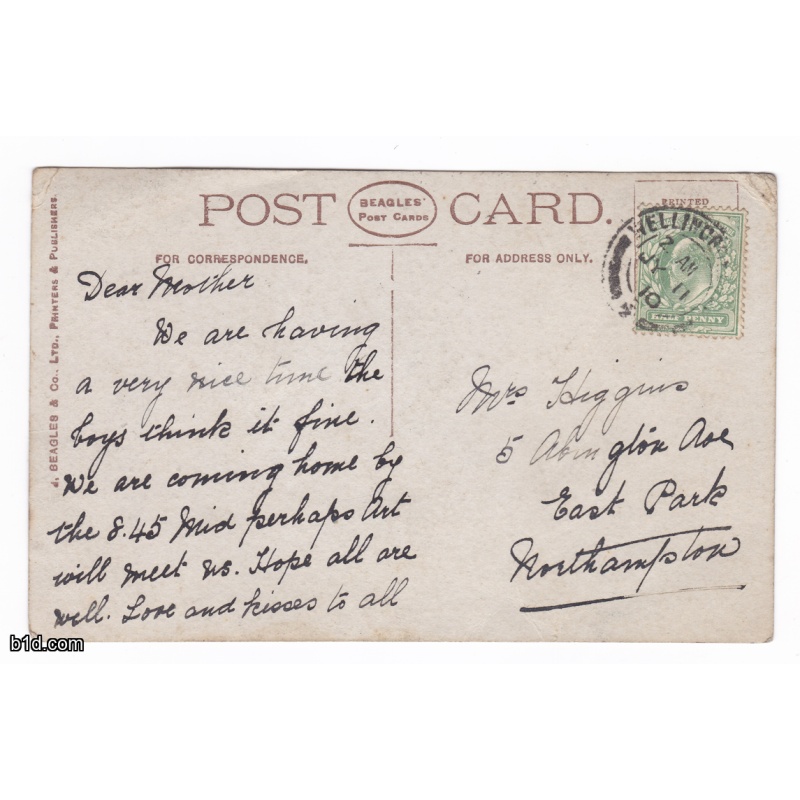 POST CARD.
BEAGLES'
POST CARDS
PRINTED
FOR CORRESPONDENCE.
FOR ADDRESS ONLY.
J. BEAGLES & CO., LTD., PRINTERS & PUBLISHERS.
2 AM
JY 11
10
HALF PENNY
Dear Mother
We are having
a very nice time the
boys think it fine.
We are coming home by
the 8.45 Mid perhaps Art
will meet us. Hope all are
well. Love and kisses to all
Mrs Higgins
5 Abington Ave
East Park
Northampton
b1d.com